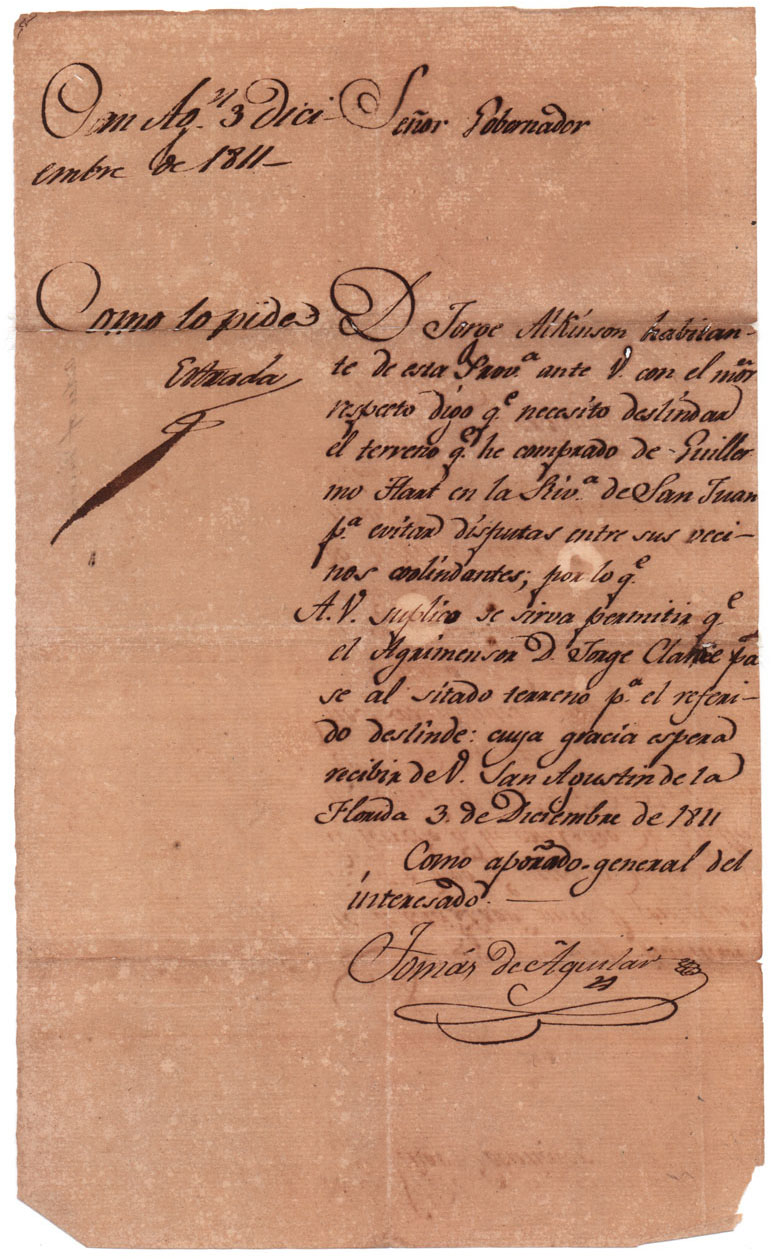 San Ag.n 3 dici-
embre de 1811-
Como lo pide
Estrada
Señor Gobernador
D Jorge Atkinson habitan-
te de esta Prov.a ante V. con el mõr
respecto digo q.e necesito deslindar
el terreno q.e he comprado de Guiller
mo Hart en la Riv.a de San Juan
p.a evitar disputas entre sus veci-
nos colindantes; por lo q.e
A. V. suplico se sirva permitir q.e
el Agrimensor D. Jorge Clarke pa
se al sitado terreno p.a el referi-
do deslinde: cuya gracia espera
recibir de V. San Agustin de la
Florida 3. de Diciembre de 1811
Como apõrado general del
interesado.
Tomás de Aguilar